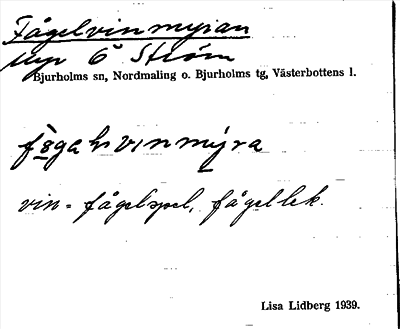 Fågelvinmyran
Myr Ö Ström
Bjurholms sn, Nordmaling o. Bjurholms tg, Västerbottens l.
vin = fågelspel, fågellek.
Lisa Lidberg 1939.